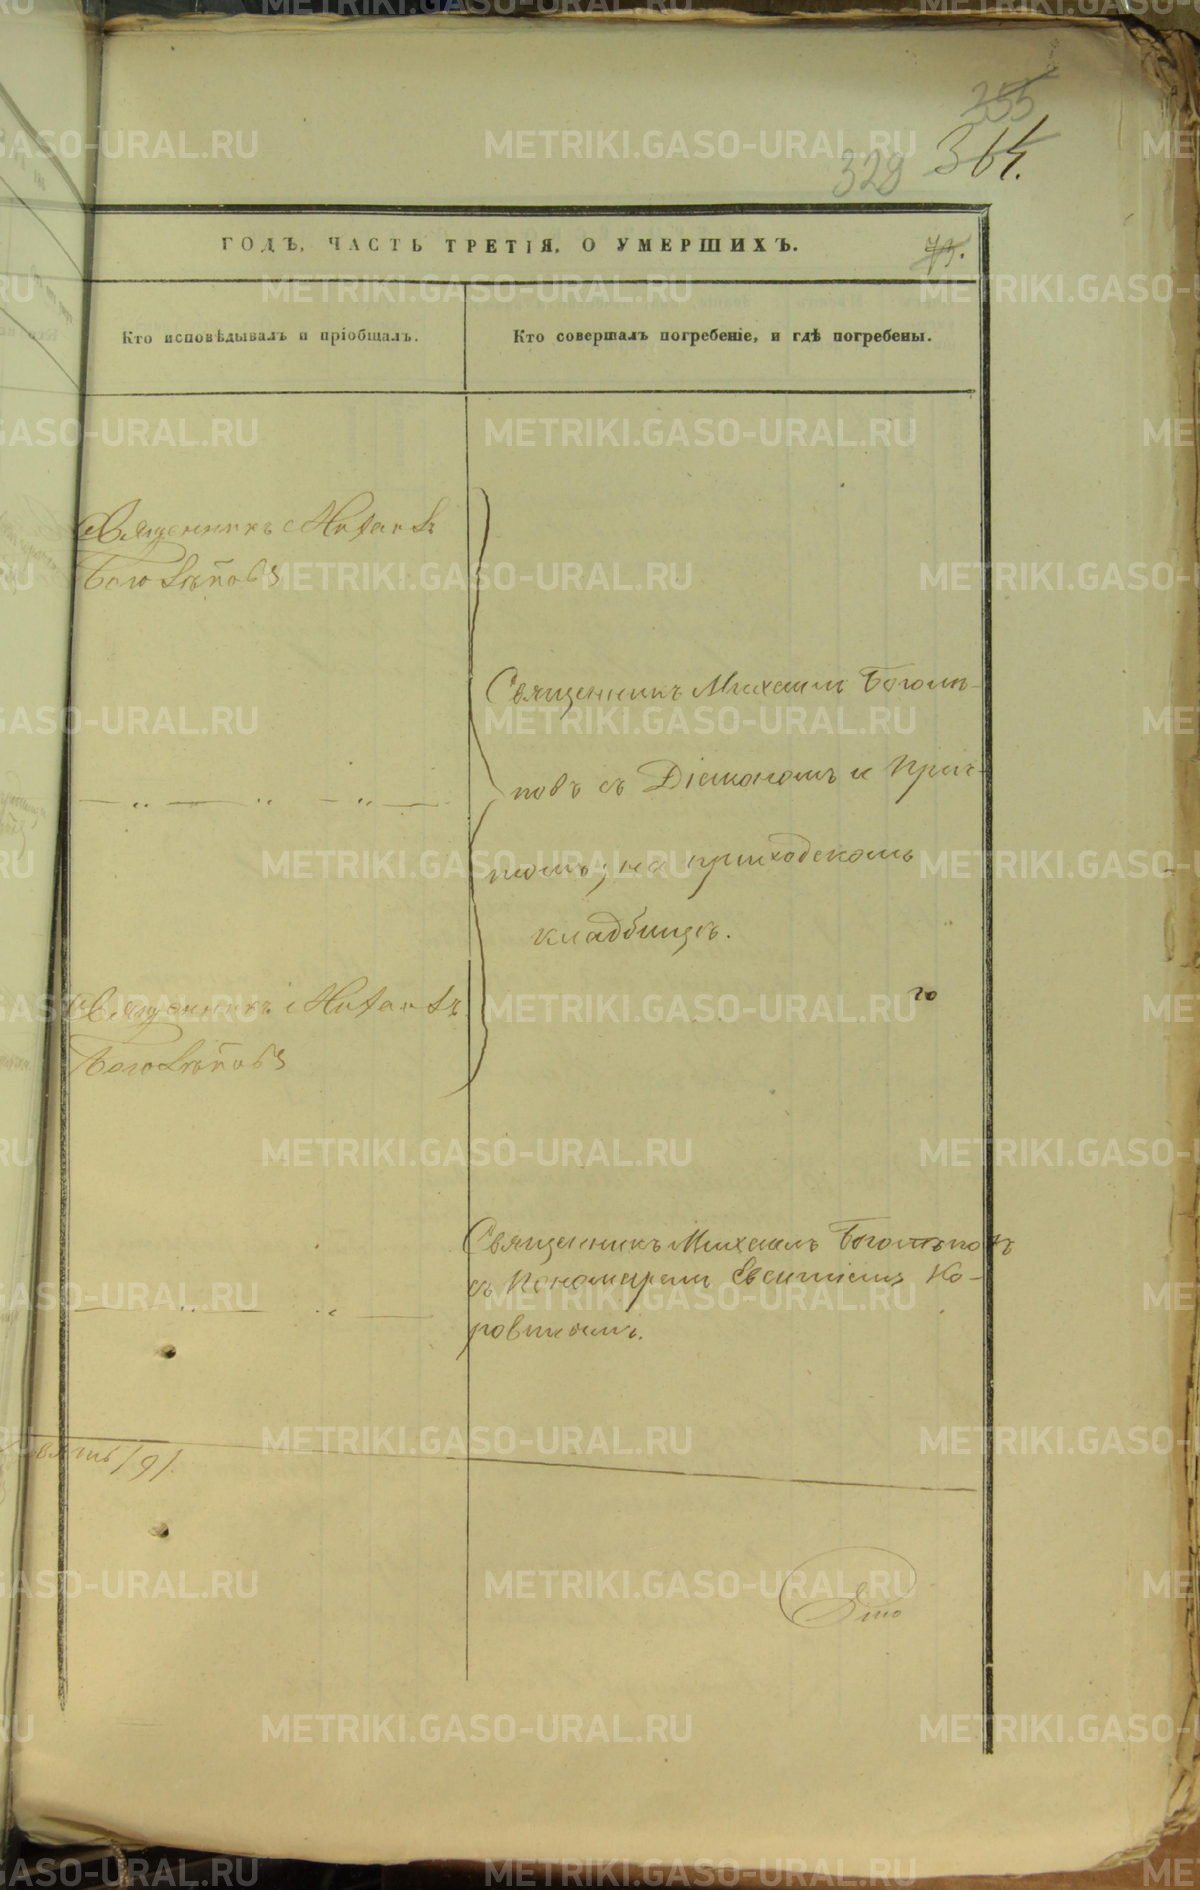 355
328 364.
ГОДЪ, ЧАСТЬ ТРЕТІЯ, О УМЕРШИХЪ.
73.
Кто исповѣдывалъ и пріобщалъ.
Кто совершалъ погребеніе, и гдѣ погребены.
Священникъ Михаилъ
Боголѣповъ
Священникъ Михаилъ Боголѣ-
повъ съ Діакономъ и Прич-
томъ; на приходскомъ
кладбищѣ.
Священникъ Михаилъ
Боголѣповъ
го
Священникъ Михаилъ Боголѣповъ
съ Пономаремъ Ко-
ровинымъ.
/9/.
METRIKI.GASO-URAL.RU